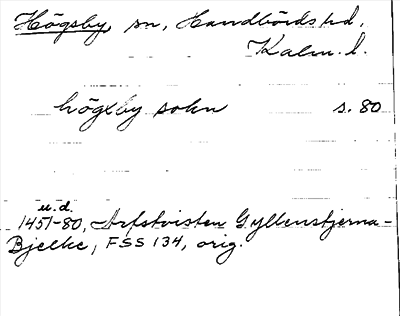 Högsby, sn, Handbörds hd,
Kalm. l.
högxby sokn s. 80
u.d.
1451-80, Arfstvisten Gyllenstjerna-
Bjelke, FSS 134, orig.